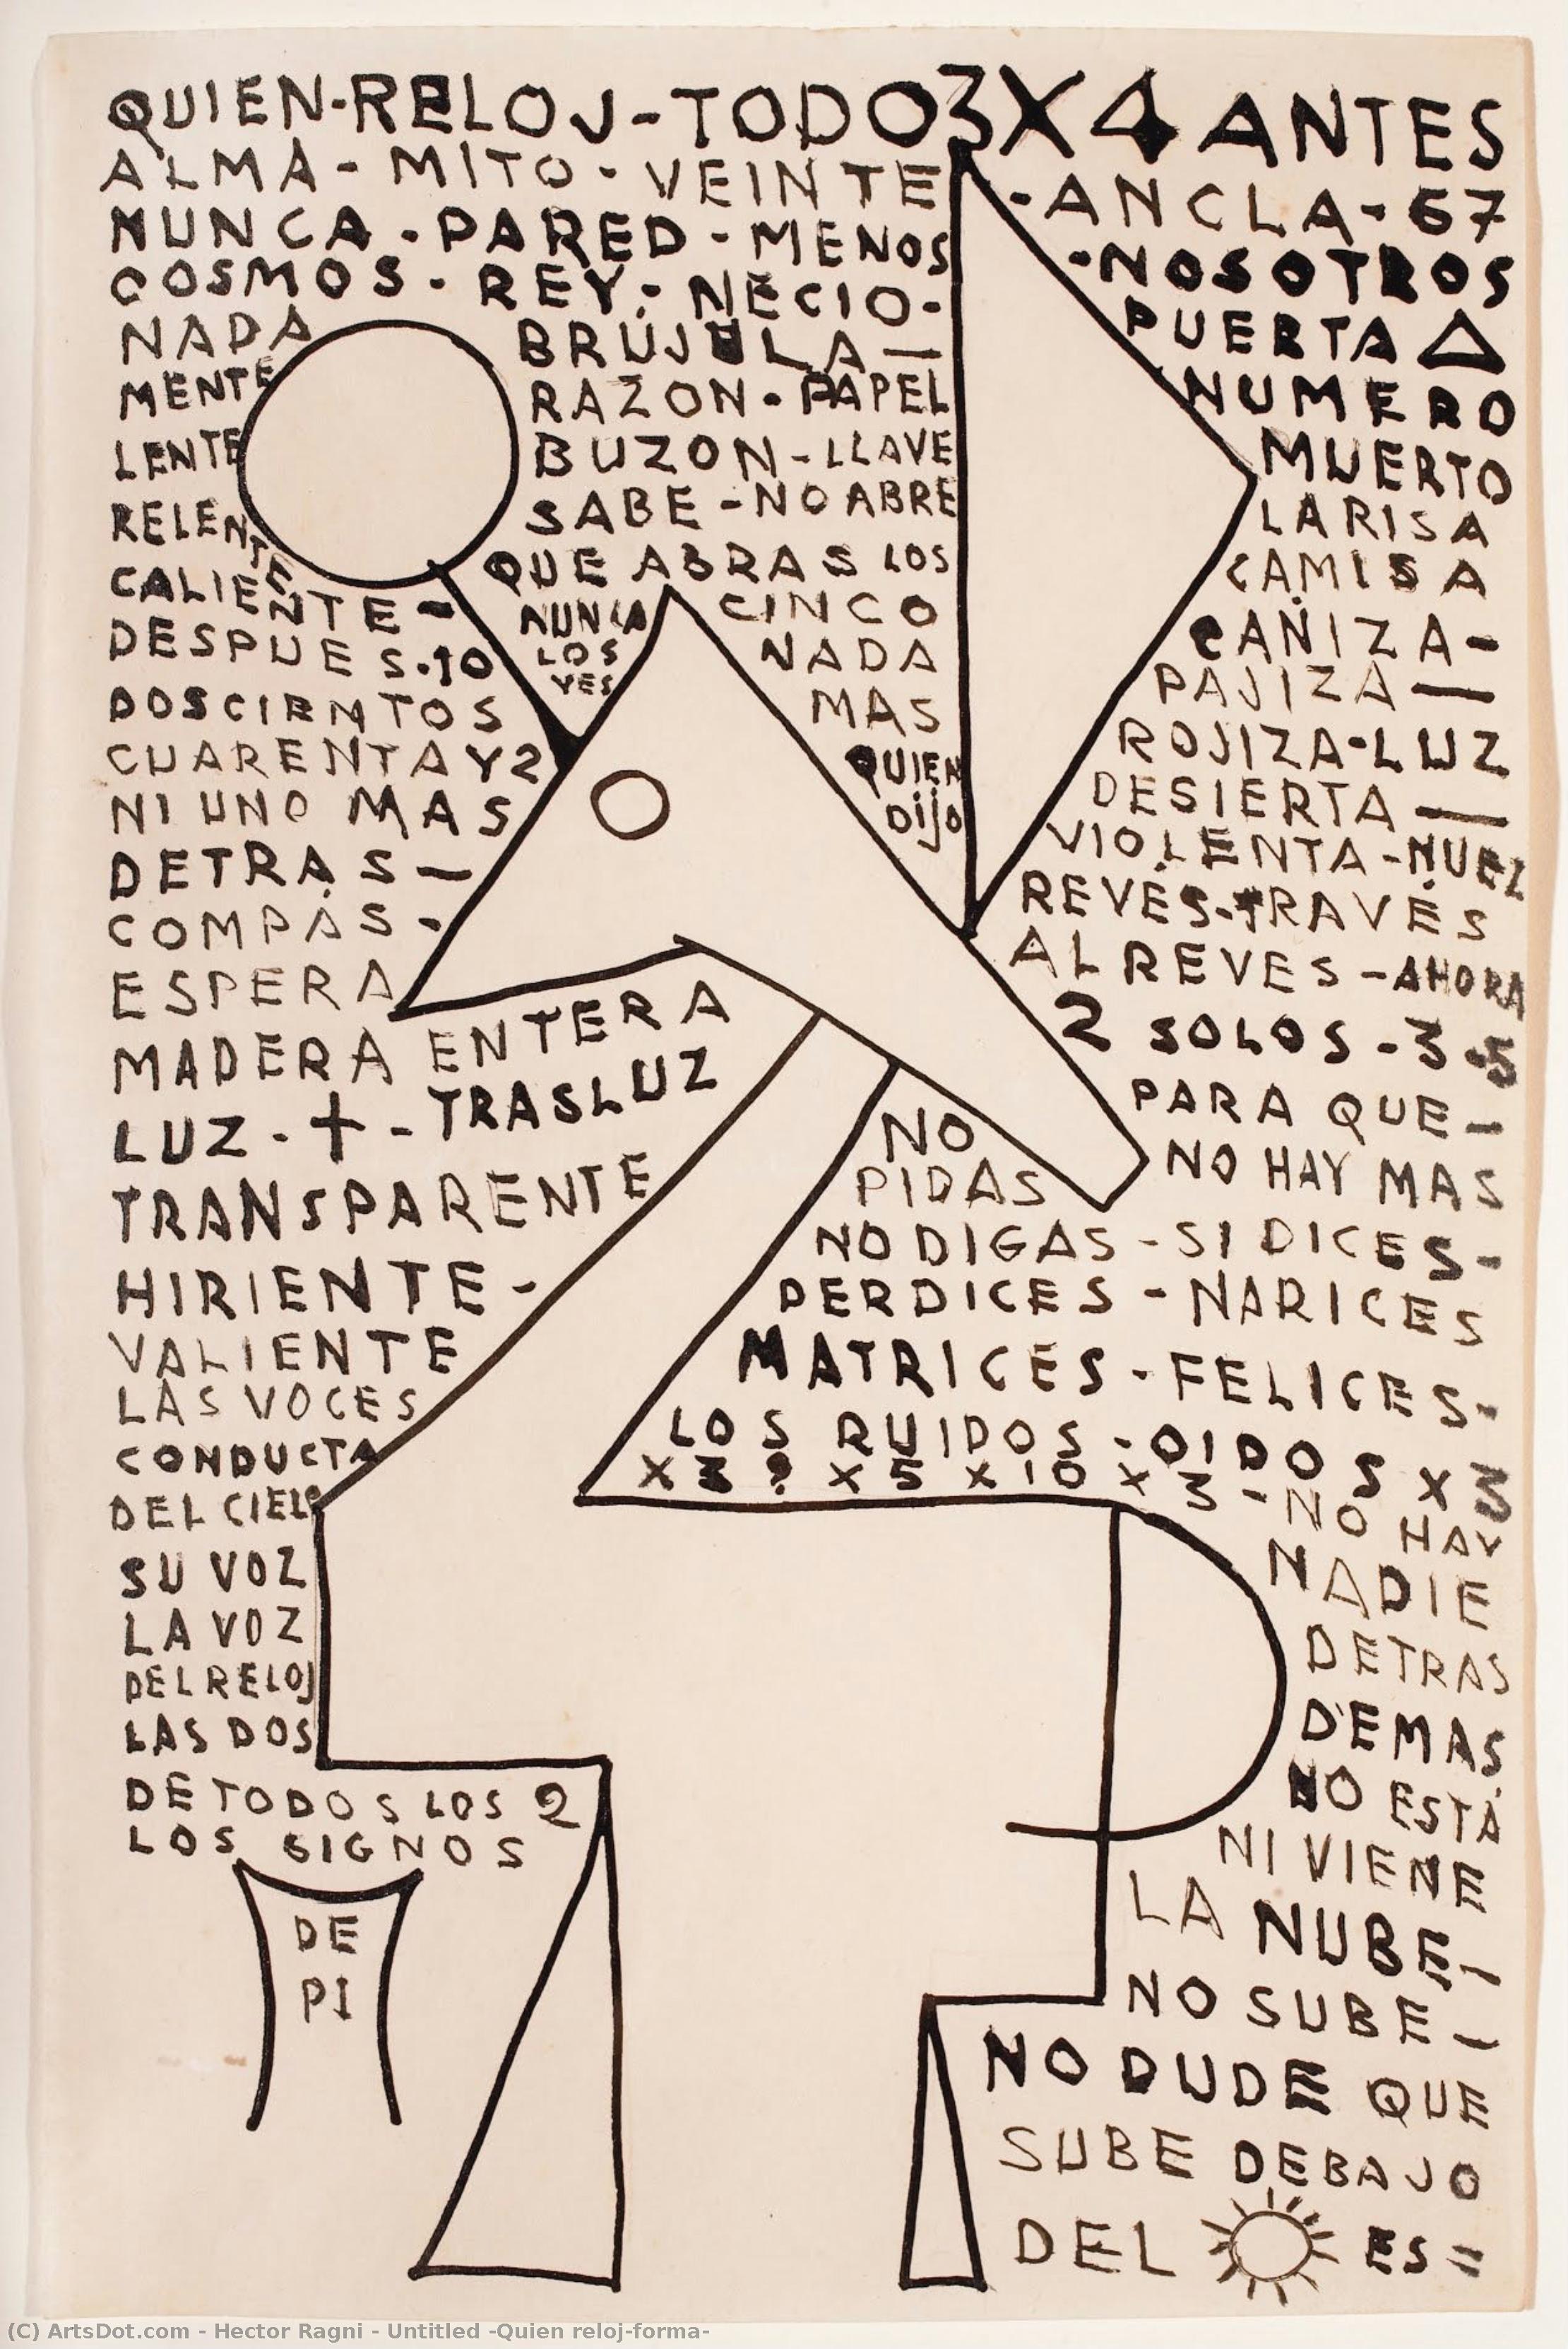 QUIEN-RELOJ-TODO 3X4 ANTES
ALMA-MITO-VEINTE
-ANCLA-67
NUNCA-PARED-MENOS
-NOSOTROS
COSMOS-REY-NECIO-
PUERTA △
NADA
BRÚJULA—
NUMERO
MENTE
RAZON-PAPEL
MUERTO
LENTE
BUZON-LLAVE
LA RISA
RELENTE
SABE-NO ABRE
CAMISA
CALIENTE-
QUE ABRAS LOS
CAÑIZA-
DESPUES-10
NUNCA
LOS
YES
CINCO
NADA
MAS
QUIEN
DIJO
PAJIZA—
ROJIZA-LUZ
DESIERTA—
VIOLENTA-NUEZ
REVÉS-TRAVÉS
AL REVES-AHORA
2 SOLOS-3
PARA QUE-
NO HAY MAS
DOSCIENTOS
CUARENTA Y 2
NI UNO MAS
O
DETRÁS-
COMPÁS-
ESPERA
MADERA ENTERA
LUZ-+-TRASLUZ
TRANSPARENTE
HIRIENTE-
VALIENTE
LAS VOCES
CONDUCTA
DEL CIELO
SU VOZ
LA VOZ
DEL RELOJ
LAS DOS
DE TODOS LOS 2
LOS SIGNOS
DE
PI
NO
PIDAS
NO DIGAS-SI DICES-
PERDICES-NARICES
MATRICES-FELICES-
LOS RUIDOS-OIDOS X
X X 5 X 10 X 5-NO HAY
NADIE
DETRAS
DEMAS
NO ESTÁ
NI VIENE
LA NUBE-
NO SUBE-
NO DUDE QUE
SUBE DEBAJO
DEL ES=
(C) ArtsDot.com - Hector Ragni - Untitled -Quien reloj-forma-